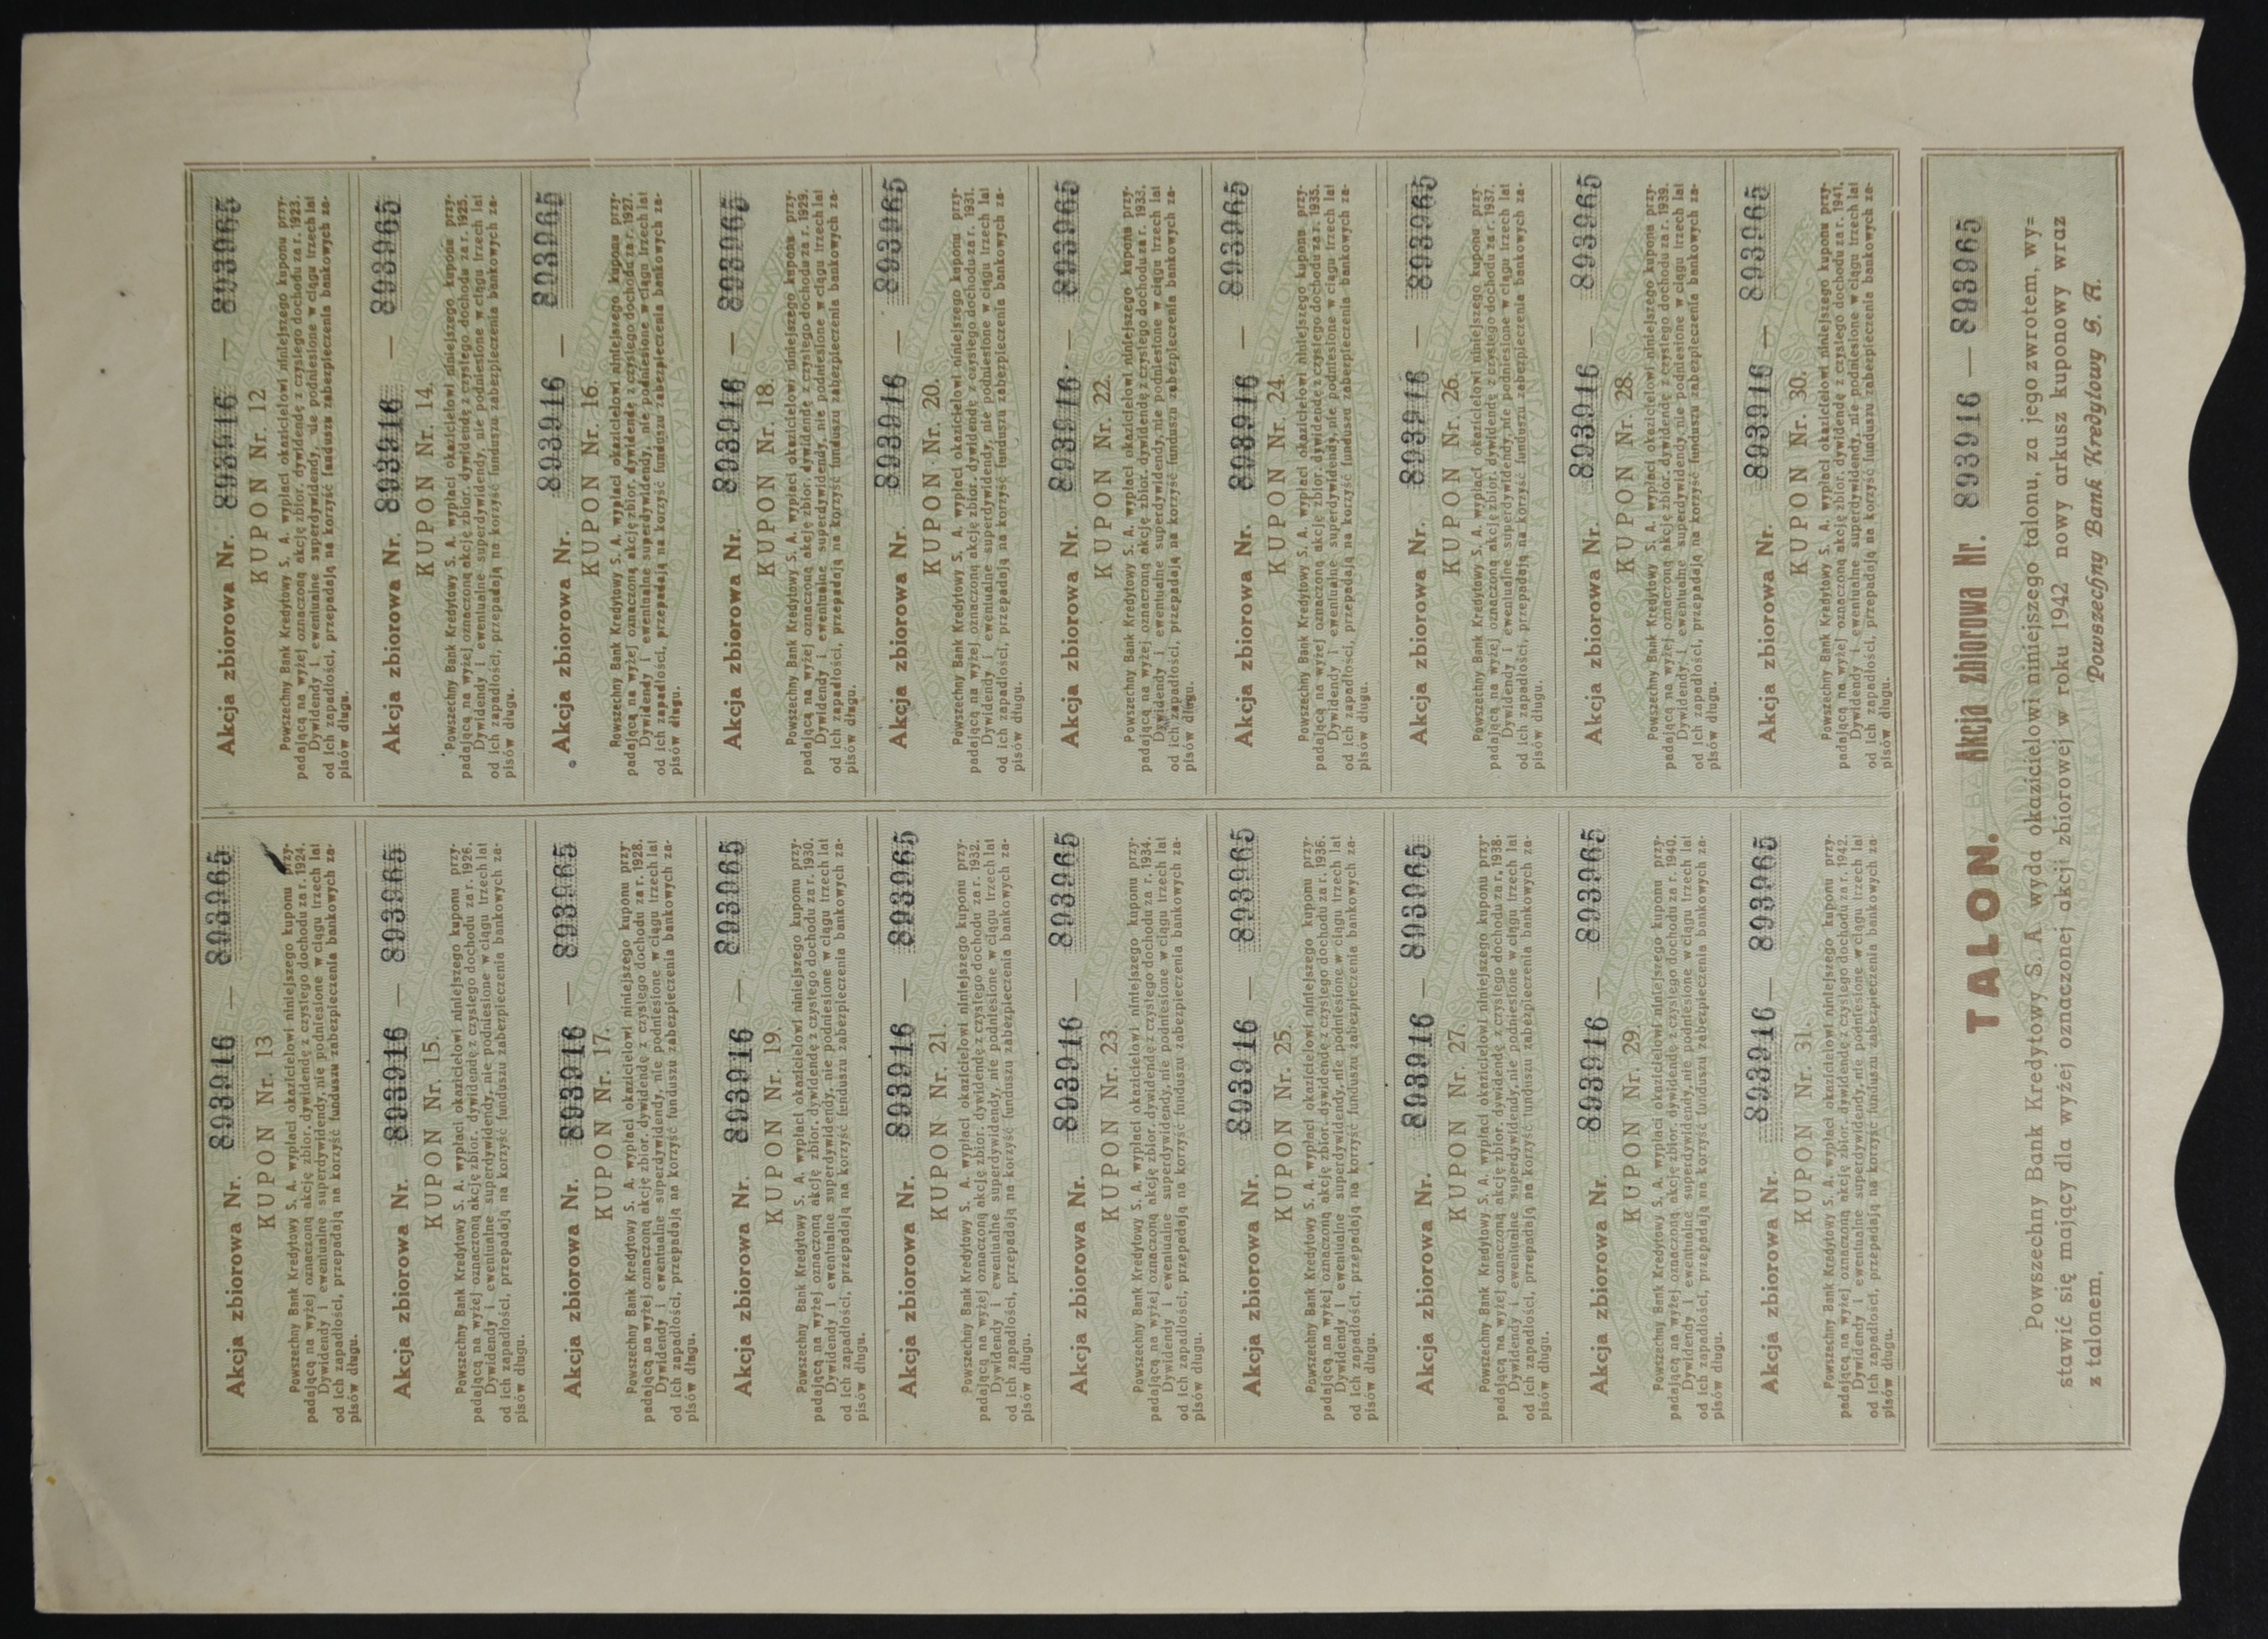 Akcja zbiorowa Nr. 893916 — 893965
KUPON Nr. 13
Powszechny Bank Kredytowy S. A. wypłaci okazicielowi niniejszego kuponu przy-
padającą na wyżej oznaczoną akcję zbior. dywidendę z czystego dochodu za r. 1924.
Dywidendy i ewentualne superdywidendy, nie podniesione w ciągu trzech lat
od ich zapadłości, przepadają na korzyść funduszu zabezpieczenia bankowych za-
pisów długu.
Akcja zbiorowa Nr. 893916 — 893965
KUPON Nr. 12
Powszechny Bank Kredytowy S. A. wypłaci okazicielowi niniejszego kuponu przy-
padającą na wyżej oznaczoną akcję zbior. dywidendę z czystego dochodu za r. 1923.
Dywidendy i ewentualne superdywidendy, nie podniesione w ciągu trzech lat
od ich zapadłości, przepadają na korzyść funduszu zabezpieczenia bankowych za-
pisów długu.
Akcja zbiorowa Nr. 893916 — 893965
KUPON Nr. 15.
Powszechny Bank Kredytowy S. A. wypłaci okazicielowi niniejszego kuponu przy-
padającą na wyżej oznaczoną akcję zbior. dywidendę z czystego dochodu za r. 1926.
Dywidendy i ewentualne superdywidendy, nie podniesione w ciągu trzech lat
od ich zapadłości, przepadają na korzyść funduszu zabezpieczenia bankowych za-
pisów długu.
Akcja zbiorowa Nr. 893916 — 893965
KUPON Nr. 14.
Powszechny Bank Kredytowy S. A. wypłaci okazicielowi niniejszego kuponu przy-
padającą na wyżej oznaczoną akcję zbior. dywidendę z czystego dochodu za r. 1925.
Dywidendy i ewentualne superdywidendy, nie podniesione w ciągu trzech lat
od ich zapadłości, przepadają na korzyść funduszu zabezpieczenia bankowych za-
pisów długu.
Akcja zbiorowa Nr. 893916 — 893965
KUPON Nr. 17.
Powszechny Bank Kredytowy S. A. wypłaci okazicielowi niniejszego kuponu przy-
padającą na wyżej oznaczoną akcję zbior. dywidendę z czystego dochodu za r. 1928.
Dywidendy i ewentualne superdywidendy, nie podniesione w ciągu trzech lat
od ich zapadłości, przepadają na korzyść funduszu zabezpieczenia bankowych za-
pisów długu.
Akcja zbiorowa Nr. 893916 — 893965
KUPON Nr. 16.
Powszechny Bank Kredytowy S. A. wypłaci okazicielowi niniejszego kuponu przy-
padającą na wyżej oznaczoną akcję zbior. dywidendę z czystego dochodu za r. 1927.
Dywidendy i ewentualne superdywidendy, nie podniesione w ciągu trzech lat
od ich zapadłości, przepadają na korzyść funduszu zabezpieczenia bankowych za-
pisów długu.
Akcja zbiorowa Nr. 893916 — 893965
KUPON Nr. 19.
Powszechny Bank Kredytowy S. A. wypłaci okazicielowi niniejszego kuponu przy-
padającą na wyżej oznaczoną akcję zbior. dywidendę z czystego dochodu za r. 1930.
Dywidendy i ewentualne superdywidendy, nie podniesione w ciągu trzech lat
od ich zapadłości, przepadają na korzyść funduszu zabezpieczenia bankowych za-
pisów długu.
Akcja zbiorowa Nr. 893916 — 893965
KUPON Nr. 18.
Powszechny Bank Kredytowy S. A. wypłaci okazicielowi niniejszego kuponu przy-
padającą na wyżej oznaczoną akcję zbior. dywidendę z czystego dochodu za r. 1929.
Dywidendy i ewentualne superdywidendy, nie podniesione w ciągu trzech lat
od ich zapadłości, przepadają na korzyść funduszu zabezpieczenia bankowych za-
pisów długu.
Akcja zbiorowa Nr. 893916 — 893965
KUPON Nr. 21.
Powszechny Bank Kredytowy S. A. wypłaci okazicielowi niniejszego kuponu przy-
padającą na wyżej oznaczoną akcję zbior. dywidendę z czystego dochodu za r. 1932.
Dywidendy i ewentualne superdywidendy, nie podniesione w ciągu trzech lat
od ich zapadłości, przepadają na korzyść funduszu zabezpieczenia bankowych za-
pisów długu.
Akcja zbiorowa Nr. 893916 — 893965
KUPON Nr. 20.
Powszechny Bank Kredytowy S. A. wypłaci okazicielowi niniejszego kuponu przy-
padającą na wyżej oznaczoną akcję zbior. dywidendę z czystego dochodu za r. 1931.
Dywidendy i ewentualne superdywidendy, nie podniesione w ciągu trzech lat
od ich zapadłości, przepadają na korzyść funduszu zabezpieczenia bankowych za-
pisów długu.
Akcja zbiorowa Nr. 893916 — 893965
KUPON Nr. 23.
Powszechny Bank Kredytowy S. A. wypłaci okazicielowi niniejszego kuponu przy-
padającą na wyżej oznaczoną akcję zbior. dywidendę z czystego dochodu za r. 1934.
Dywidendy i ewentualne superdywidendy, nie podniesione w ciągu trzech lat
od ich zapadłości, przepadają na korzyść funduszu zabezpieczenia bankowych za-
pisów długu.
Akcja zbiorowa Nr. 893916 — 893965
KUPON Nr. 22.
Powszechny Bank Kredytowy S. A. wypłaci okazicielowi niniejszego kuponu przy-
padającą na wyżej oznaczoną akcję zbior. dywidendę z czystego dochodu za r. 1933.
Dywidendy i ewentualne superdywidendy, nie podniesione w ciągu trzech lat
od ich zapadłości, przepadają na korzyść funduszu zabezpieczenia bankowych za-
pisów długu.
Akcja zbiorowa Nr. 893916 — 893965
KUPON Nr. 25.
Powszechny Bank Kredytowy S. A. wypłaci okazicielowi niniejszego kuponu przy-
padającą na wyżej oznaczoną akcję zbior. dywidendę z czystego dochodu za r. 1936.
Dywidendy i ewentualne superdywidendy, nie podniesione w ciągu trzech lat
od ich zapadłości, przepadają na korzyść funduszu zabezpieczenia bankowych za-
pisów długu.
Akcja zbiorowa Nr. 893916 — 893965
KUPON Nr. 24.
Powszechny Bank Kredytowy S. A. wypłaci okazicielowi niniejszego kuponu przy-
padającą na wyżej oznaczoną akcję zbior. dywidendę z czystego dochodu za r. 1935.
Dywidendy i ewentualne superdywidendy, nie podniesione w ciągu trzech lat
od ich zapadłości, przepadają na korzyść funduszu zabezpieczenia bankowych za-
pisów długu.
Akcja zbiorowa Nr. 893916 — 893965
KUPON Nr. 27.
Powszechny Bank Kredytowy S. A. wypłaci okazicielowi niniejszego kuponu przy-
padającą na wyżej oznaczoną akcję zbior. dywidendę z czystego dochodu za r. 1938.
Dywidendy i ewentualne superdywidendy, nie podniesione w ciągu trzech lat
od ich zapadłości, przepadają na korzyść funduszu zabezpieczenia bankowych za-
pisów długu.
Akcja zbiorowa Nr. 893916 — 893965
KUPON Nr. 26.
Powszechny Bank Kredytowy S. A. wypłaci okazicielowi niniejszego kuponu przy-
padającą na wyżej oznaczoną akcję zbior. dywidendę z czystego dochodu za r. 1937.
Dywidendy i ewentualne superdywidendy, nie podniesione w ciągu trzech lat
od ich zapadłości, przepadają na korzyść funduszu zabezpieczenia bankowych za-
pisów długu.
Akcja zbiorowa Nr. 893916 — 893965
KUPON Nr. 29.
Powszechny Bank Kredytowy S. A. wypłaci okazicielowi niniejszego kuponu przy-
padającą na wyżej oznaczoną akcję zbior. dywidendę z czystego dochodu za r. 1940.
Dywidendy i ewentualne superdywidendy, nie podniesione w ciągu trzech lat
od ich zapadłości, przepadają na korzyść funduszu zabezpieczenia bankowych za-
pisów długu.
Akcja zbiorowa Nr. 893916 — 893965
KUPON Nr. 28.
Powszechny Bank Kredytowy S. A. wypłaci okazicielowi niniejszego kuponu przy-
padającą na wyżej oznaczoną akcję zbior. dywidendę z czystego dochodu za r. 1939.
Dywidendy i ewentualne superdywidendy, nie podniesione w ciągu trzech lat
od ich zapadłości, przepadają na korzyść funduszu zabezpieczenia bankowych za-
pisów długu.
Akcja zbiorowa Nr. 893916 — 893965
KUPON Nr. 31.
Powszechny Bank Kredytowy S. A. wypłaci okazicielowi niniejszego kuponu przy-
padającą na wyżej oznaczoną akcję zbior. dywidendę z czystego dochodu za r. 1942.
Dywidendy i ewentualne superdywidendy, nie podniesione w ciągu trzech lat
od ich zapadłości, przepadają na korzyść funduszu zabezpieczenia bankowych za-
pisów długu.
Akcja zbiorowa Nr. 893916 — 893965
KUPON Nr. 30.
Powszechny Bank Kredytowy S. A. wypłaci okazicielowi niniejszego kuponu przy-
padającą na wyżej oznaczoną akcję zbior. dywidendę z czystego dochodu za r. 1941.
Dywidendy i ewentualne superdywidendy, nie podniesione w ciągu trzech lat
od ich zapadłości, przepadają na korzyść funduszu zabezpieczenia bankowych za-
pisów długu.
TALON. Akcja zbiorowa Nr. 893916 — 893965
Powszechny Bank Kredytowy S. A. wyda okazicielowi niniejszego talonu, za jego zwrotem, wy=
stawić się mający dla wyżej oznaczonej akcji zbiorowej w roku 1942 nowy arkusz kuponowy wraz
z talonem.
Powszechny Bank Kredytowy S. A.